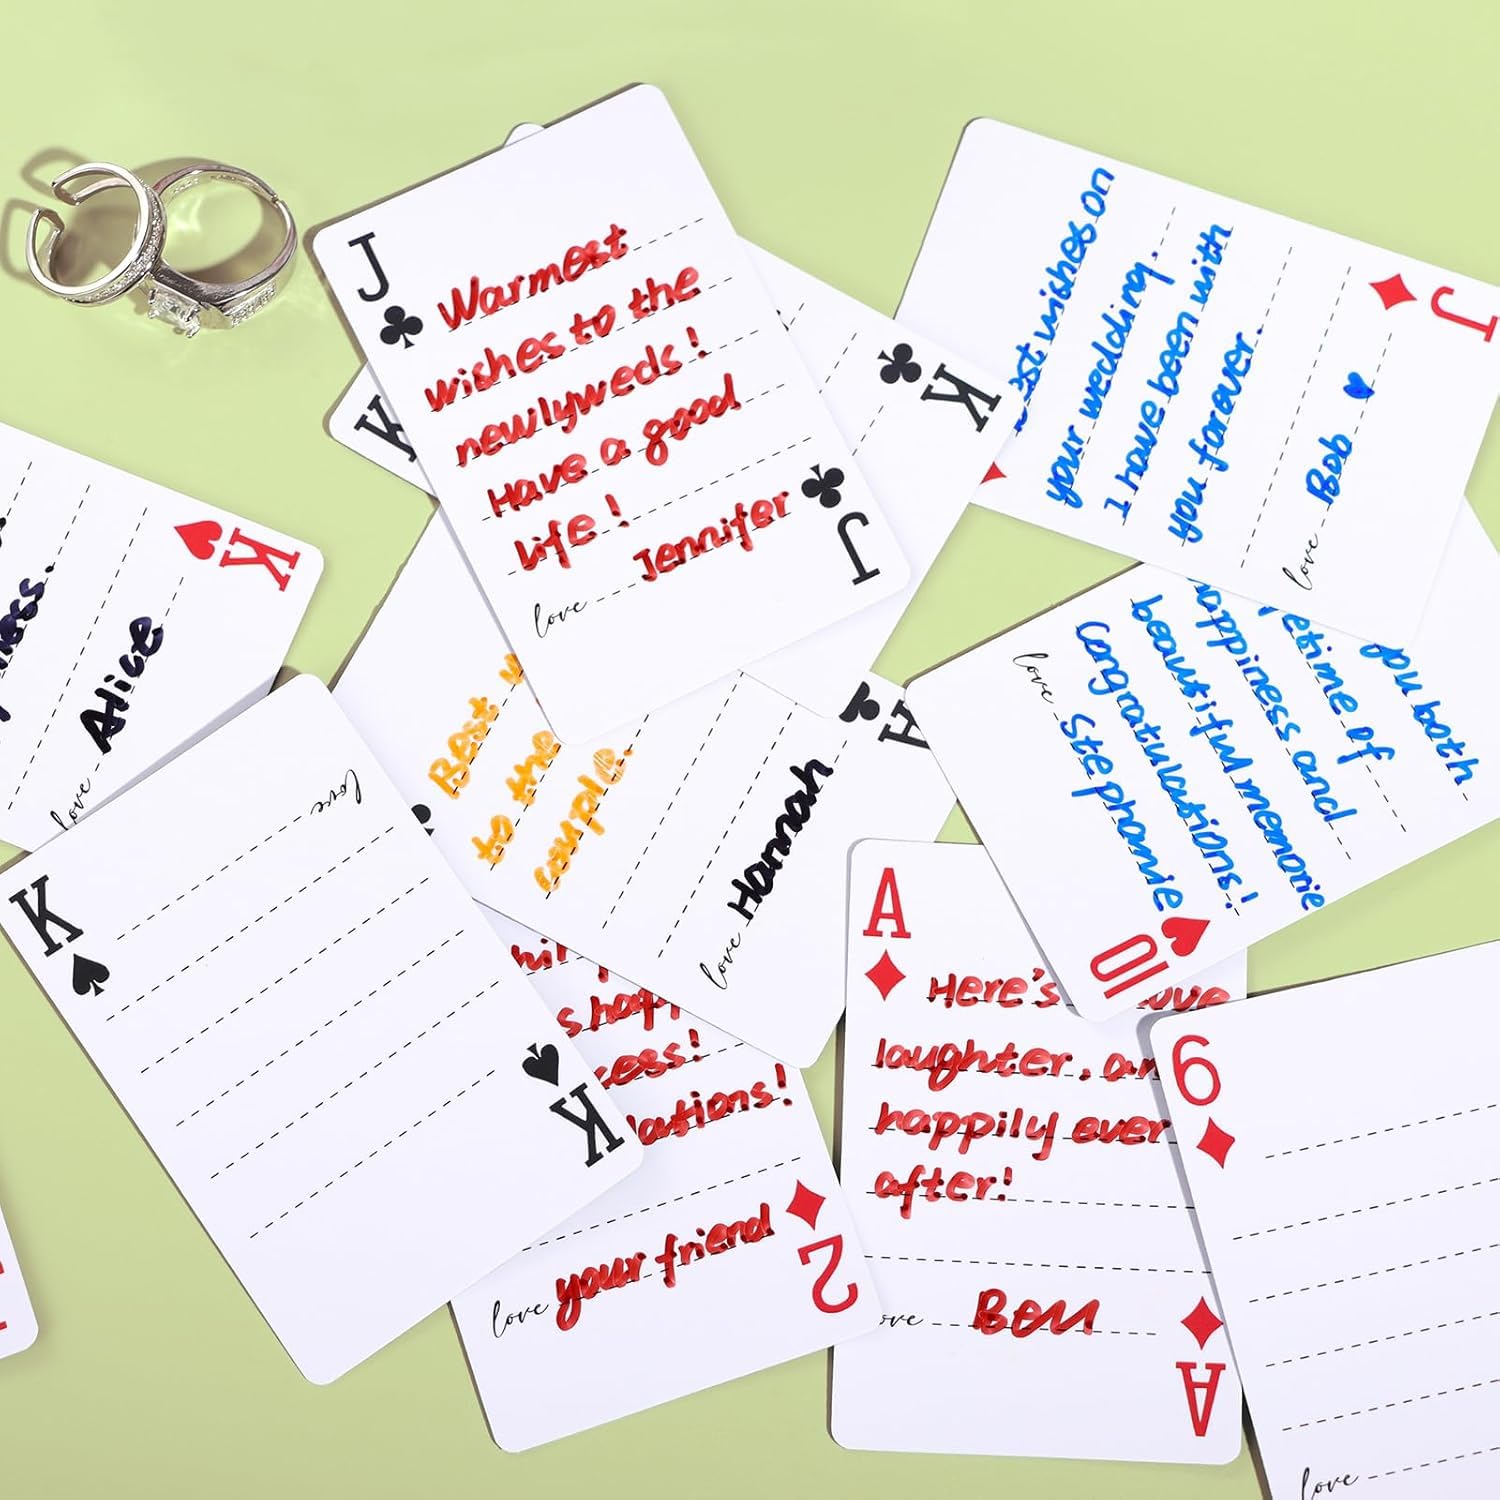 J
Warmest
wishes to the
newlyweds!
Have a good
life!
love Jennifer
J
K
K
Best wishes on
your wedding.
I have been with
you forever.
love Bob
J
K
Alice
love
Best
to the
couple.
love Hannah
A
you both
lifetime of
happiness and
beautiful memorie
Congratulations!
love Stephanie
10
K
love
K
success!
your friend
love
2
A
Here's love
laughter, an
happily ever
after!
love Ben
A
9
love